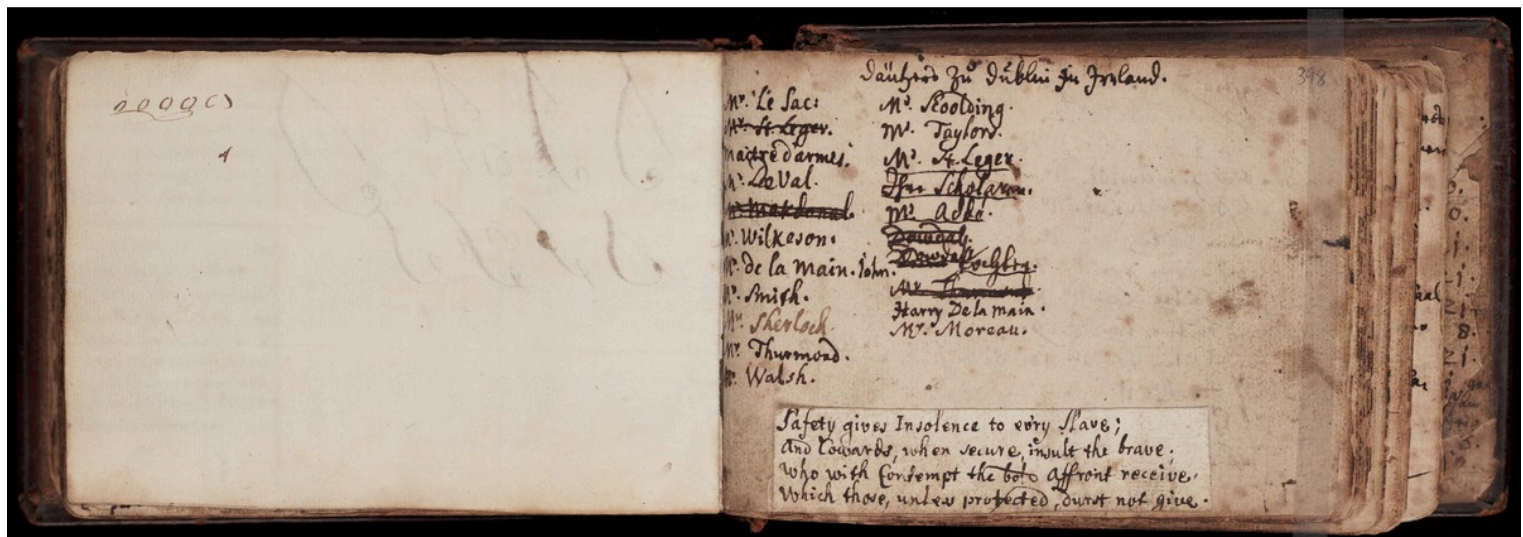 20000
1
398
däntzers zu düblin in Ireland.
Mr. Le Sac:
Mr. St. Leger.
maitre d'armes.
Mr. Le Val.
Mr. Makdonal.
Mr. Wilkeson.
Mr. de la main. John.
Mr. Smith.
Mr. Sherlock.
Mr. Thurmond.
Mr. Walsh.
Mr. Skoolding.
Mr. Taylor.
Mr. St. Leger.
Scholaren.
Mr. Adde.
Dowdal.
Dowdall
Harry De la main.
Mr. Moreau.
Safety gives Insolence to ev'ry Slave;
And Cowards, when secure, insult the brave.
Who with Contempt the bold Affront receive,
Which those, unless protected, durst not give.